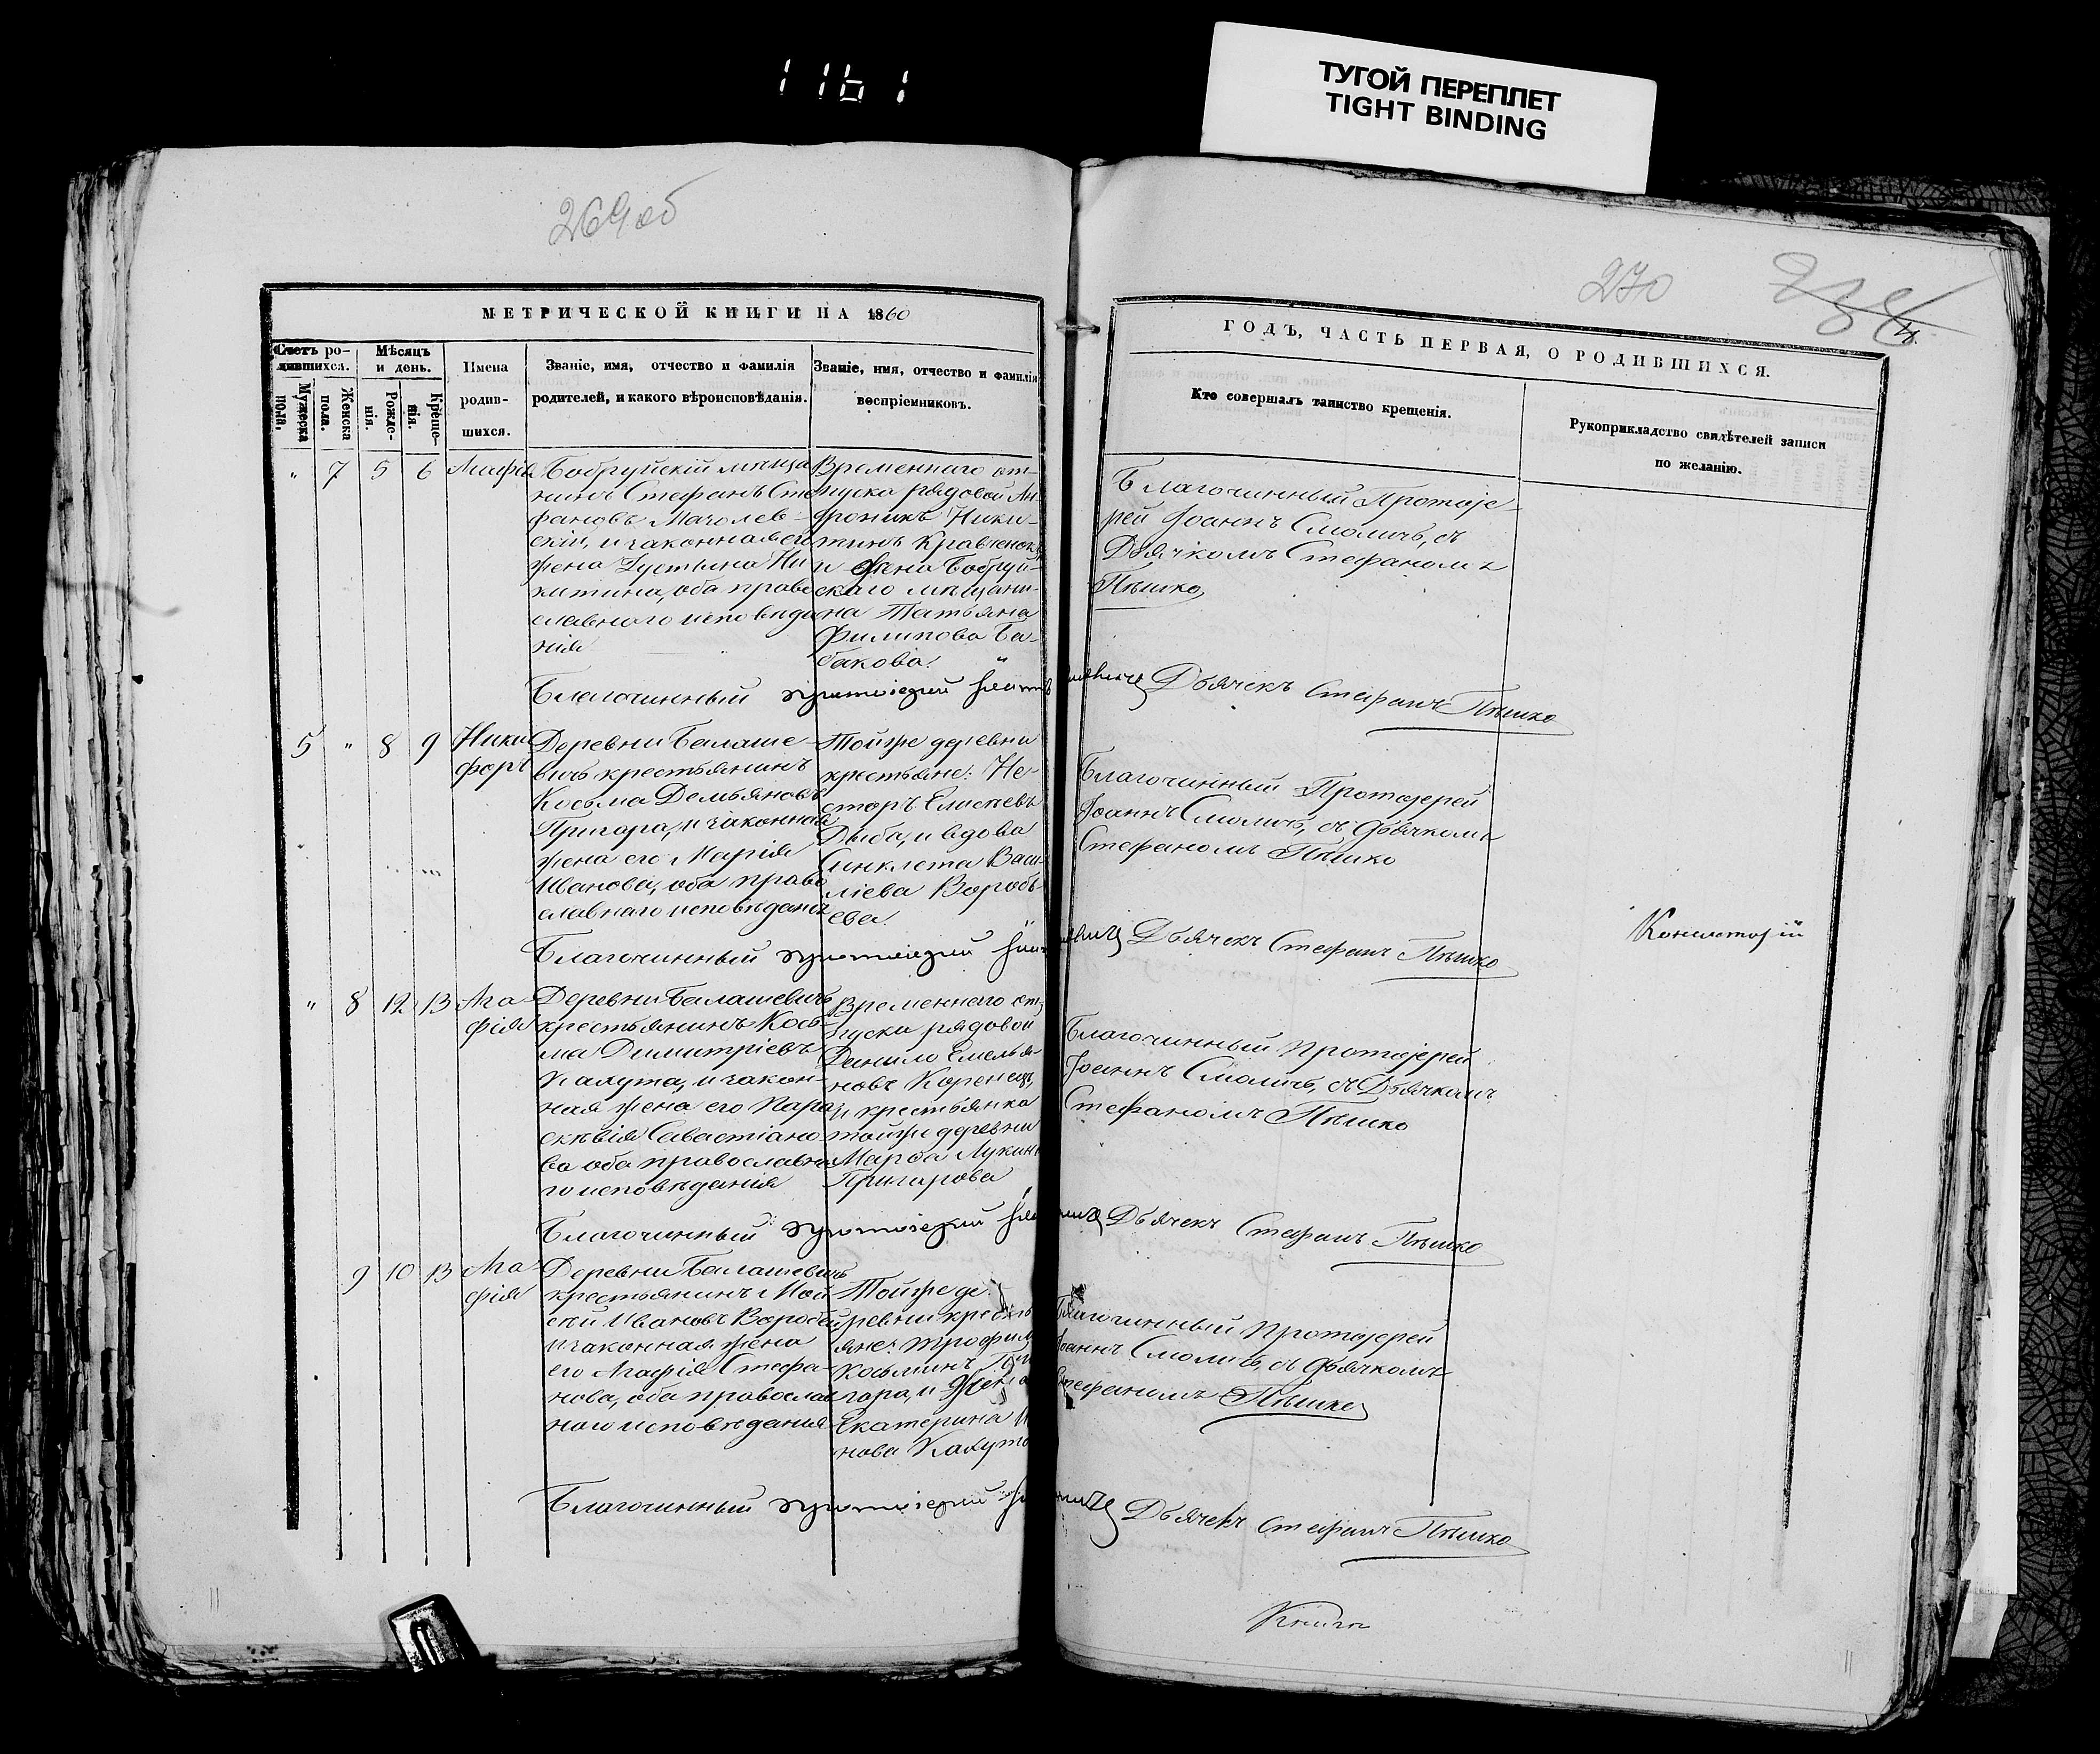 1161
ТУГОЙ ПЕРЕПЛЕТ
TIGHT BINDING
269об
270
МЕТРИЧЕСКОЙ КНИГИ НА 1860
ГОДЪ, ЧАСТЬ ПЕРВАЯ, О РОДИВШИХСЯ.
Счетъ ро-
дившихся.
Мужеска
пола.
Женска
пола.
Мѣсяцъ
и день.
Рожде-
нія.
Креще-
нія.
Имена
родив-
шихся.
Званіе, имя, отчество и фамилія
родителей, и какого вѣроисповѣданія.
Званіе, имя, отчество и фамилія
воспріемниковъ.
Кто совершалъ таинство крещенія.
Рукоприкладство свидѣтелей записи
по желанію.
" 7 5 6
Бобруйскій мѣща
нинъ Стефанъ Сте
фановъ
скій, и законная его
жена Устина Ни
китина, оба право
славнаго исповѣда
нія
Временнаго от-
пуска рядовой Ан
фроникъ Ники-
тинъ
и жена Бобруй-
скаго мѣщани-
на Татьяна
Филипова Ба-
бакова.
Благочинный Протоіе
рей Іоаннъ Смоличъ, съ
Дьячкомъ Стефаномъ
Пѣшко
Благочинный протоіерей
Дьячекъ Стефанъ Пѣшко
5 " 8 9
Ники
форъ
Деревни Балаше-
вичъ крестьянинъ
Косьма Демьяновъ
Пригара, и законная
жена его Марія
Иванова, оба право
славнаго исповѣданія
Тойже деревни
крестьяне: Не-
сторъ Елисѣевъ
Дыба, и вдова
Синклета Васи-
ліева Воробь-
ева.
Благочинный Протоіерей
Іоаннъ Смоличъ, съ дьячкомъ
Стефаномъ Пѣшко
Консисторіи
Благочинный протоіерей
Дьячекъ Стефанъ Пѣшко
" 8 12 13
Ага
фія
Деревни Балашевичъ
крестьянинъ Кось-
ма Димитріевъ
Калута, и закон-
ная жена его Пара
скевія Савастіано
ва оба православна
го исповѣданія
Временнаго от
пуска рядовой
Данило Емелья-
новъ
и крестьянка
тойже деревни
Марфа Лукин
Пригарова
Благочинный протоіерей
Іоаннъ Смоличъ, съ Дьячкомъ
Стефаномъ Пѣшко
Благочинный протоіерей
Дьячекъ Стефанъ Пѣшко
9 10 13
Ага
фія
Деревни Балашевичъ
крестьянинъ Мои
сей Ивановъ Воробей
и законная жена
его Агафія Стефа-
нова, оба православ
наго исповѣданія
Тойже де
ревни кресть
яне: Трофим
Косьминъ При
гара, и жена
Екатерина И
нова Калуто
Благочинный протоіерей
Іоаннъ Смоличъ, съ дьячкомъ
Стефаномъ Пѣшко
Благочинный протоіерей
Дьячекъ Стефанъ Пѣшко
Книги